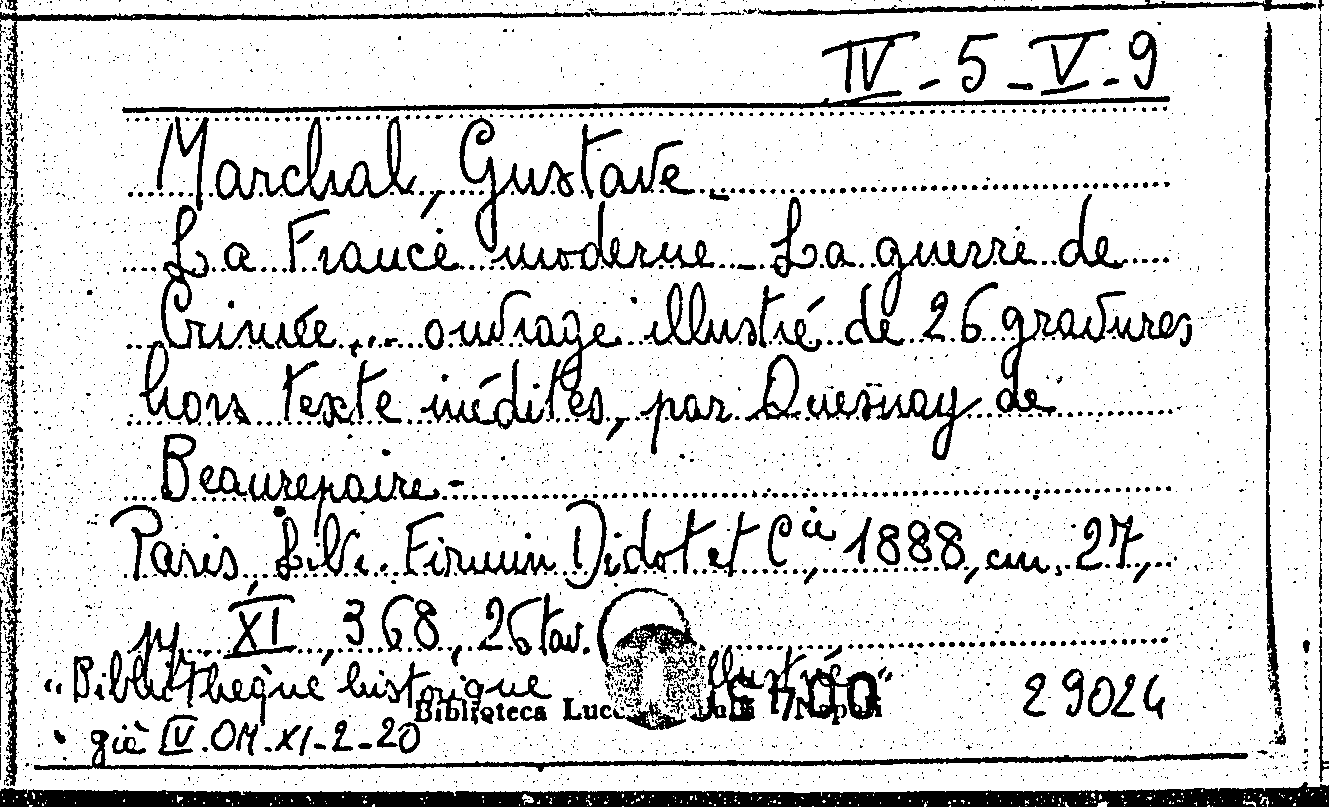 IV - 5 - V - 9
Marchal, Gustave -
La France moderne - La guerre de
Crimée... ouvrage illustré de 26 gravures
hors texte inédites, par Quesnay de
Beaurepaire -
Paris, Libr. Firmin Didot et Cie, 1888, cm. 27,
pp. XI, 368, 26 tav.
"Bibliothèque historique illustrée"
Biblioteca Napoli
29024
già IV.OM.XI-2-20